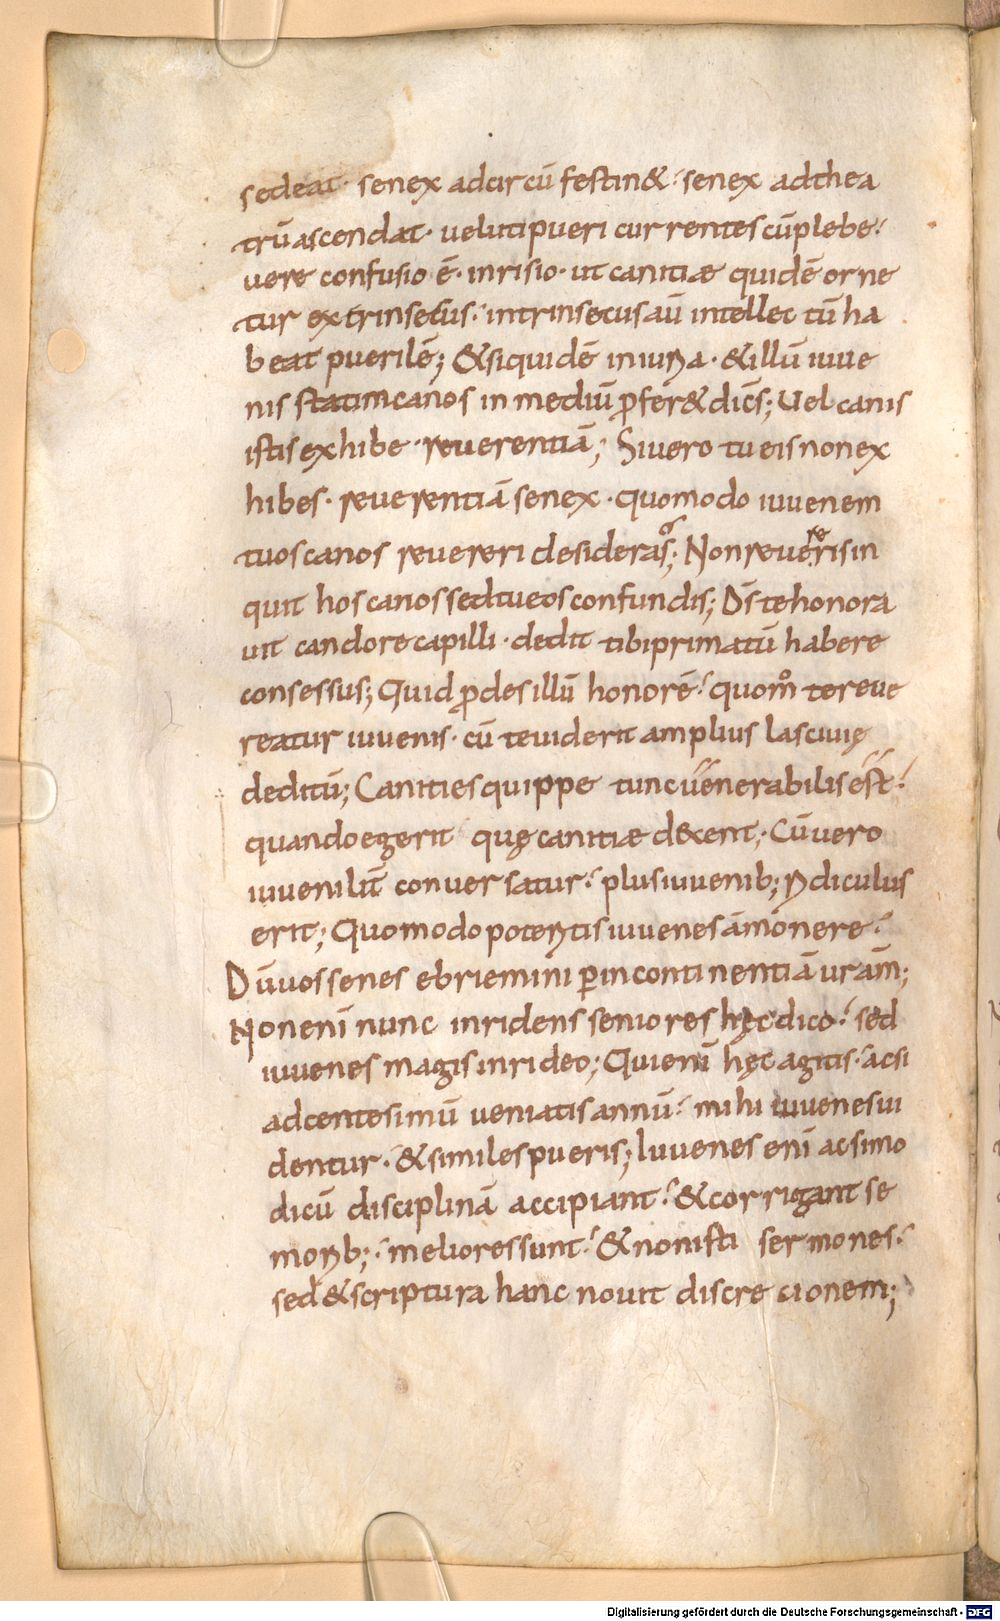 sedeat· senex adcircū festin&· senex adthea
trū ascendat· uelutipueri currentes cūplebe·
uere confusio ē· inrisio· ut canitiæ quidē orne
tur extrinsecus· intrinsecus aū intellectū ha
beat puerilē; &siquidē iniuria· &illū iuue
nis statimcanos in mediū ꝓfer& dicēs; Uel canis
istis exhibe reuerentiā; Siuero tu eis non ex
hibes· reuerentiā senex· quomodo iuuenem
tuos canos reuereri desideras; Non reueris in
quit hos canos sed tu eos confundis; Dś te honora
uit candore capilli· dedit tibi primatū habere
consessus; Quid ꝓdes illū honorē· quomͦ te reue
reatur iuuenis· cū te uiderit amplius lasciuię
deditū; Canities quippe tunc uenerabilis est·
quando egerit quę canitiæ dec&ent; Cū uero
iuuenilit̄ conuersatur· plus iuuenib; ridiculus
erit; Quomodo poteritis iuuenes āmonere·
Dū uos senes ebriemini ꝑ incontinentiā ur̄am;
Non enī nunc inridens seniores hęc dico· sed
iuuenes magis inrideo; Qui enī hęc agitis· acsi
ad centesimū ueniatis annū· mihi iuuenes ui
dentur· & similes pueris; Iuuenes enī ac si mo
dicū disciplinā accipiant· & corrigant se
morib;· meliores sunt· & non isti sermones·
sed & scriptura hanc nouit discre cionem;
Digitalisierung gefördert durch die Deutsche Forschungsgemeinschaft - DFG